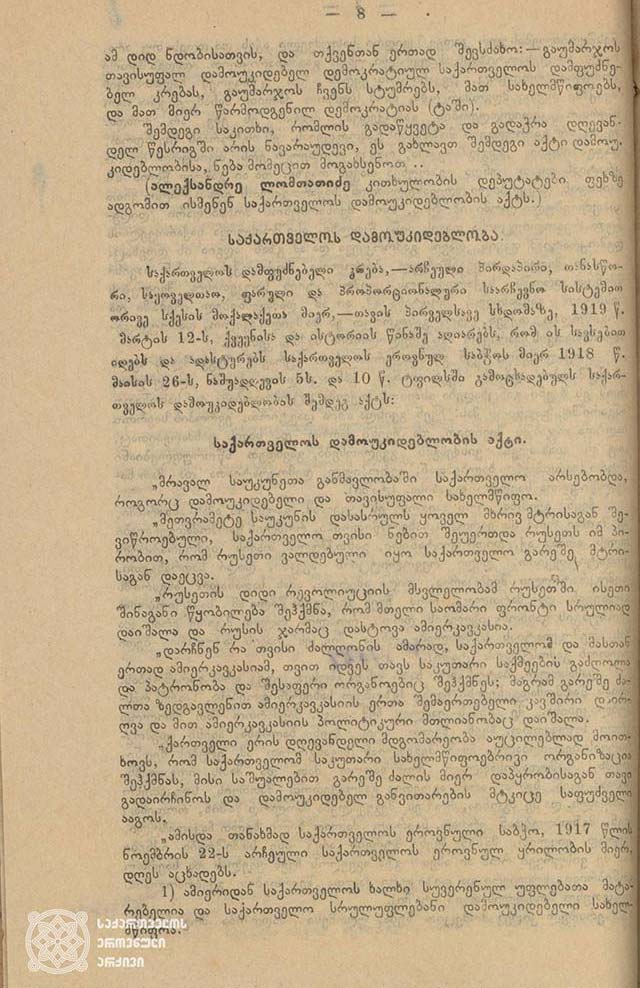 — 8 —
ამ დიდ ნდობისათვის, და თქვენთან ერთად შევსძახო:—გაუმარჯოს
თავისუფალ დამოუკიდებელ დემოკრატიულ საქართველოს დამფუძნე-
ბელ კრებას, გაუმარჯოს ჩვენს სტუმრებს, მათ სახელმწიფოებს,
და მათ მიერ წარმოდგენილ დემოკრატიას (ტაში).
შემდეგი საკითხი, რომლის გადაწყვეტა და გადაჭრა დღევან-
დელ წესრიგში არის ნავარაუდევი, ეს გახლავთ შემდეგი აქტი დამოუ-
კიდებლობისა, ნება მომეცით მოგახსენოთ ..
(ალექსანდრე ლომთათიძე კითხულობის დეპუტატები ფეხზე
ადგომით ისმენენ საქართველოს დამოუკიდებლობის აქტს.)
საქართველოს დამოუკიდებლობა.
საქართველოს დამფუძნებელი კრება,—არჩეული პირდაპირი, თანასწო-
რი, საყოველთაო, ფარული და პროპორციონალური საარჩევნო სისტემით
ორივე სქესის მოქალაქეთა მიერ,—თავის პირველსავე სხდომაზე, 1919 წ.
მარტის 12-ს, ქვეყნისა და ისტორიის წინაშე აღიარებს, რომ ის სავსებით
იღებს და ადასტურებს საქართველოს ეროვნულ საბჭოს მიერ 1918 წ.
მაისის 26-ს, ნაშუადღევის 5ს. და 10 წ. ტფილსში გამოცხადებულს საქარ-
თველოს დამოუკიდებლობის შემდეგ აქტს:
საქართველოს დამოუკიდებლობის აქტი.
„მრავალ საუკუნეთა განმავლობაში საქართველო არსებობდა,
როგორც დამოუკიდებელი და თავისუფალი სახელმწიფო.
„მეთვრამეტე საუკუნის დასასრულს ყოველ მხრივ მტრისაგან შე-
ვიწროებული, საქართველო თვისი ნებით შეუერთდა რუსეთს იმ პი-
რობით, რომ რუსეთი ვალდებული იყო საქართველო გარეშე მტრი-
საგან დაეცვა.
„რუსეთის დიდი რევოლიუციის მსვლელობამ რუსეთში ისეთი
შინაგანი წყობილება შეჰქმნა, რომ მთელი საომარი ფრონტი სრულიად
დაიშალა და რუსის ჯარმაც დასტოვა ამიერკავკასია.
„დარჩნენ რა თვისი ძალღონის ამარად, საქართველომ და მასთან
ერთად ამიერკავკასიამ, თვით იდვეს თავს საკუთარი საქმეების გაძღოლა
და პატრონობა და შესაფერი ორგანოებიც შეჰქმნეს; მაგრამ გარეშე ძა-
ლთა ზედგავლენით ამიერკავკასიის ერთა შემაერთებელი კავშირი დაირ-
ღვა და მით ამიერკავკასიის პოლიტიკური მთლიანობაც დაიშალა.
„ქართველი ერის დღევანდელი მდგომარეობა აუცილებლად მოით-
ხოვს, რომ საქართველომ საკუთარი სახელმწიფოებრივი ორგანიზაცია
შეჰქმნას, მისი საშუალებით გარეშე ძალის მიერ დაპყრობისაგან თავი
გადაირჩინოს და დამოუკიდებელ განვითარების მტკიცე საფუძველი
ააგოს.
„ამისდა თანახმად საქართველოს ეროვნული საბჭო, 1917 წლის
ნოემბრის 22-ს არჩეული საქართველოს ეროვნულ ყრილობის მიერ,
დღეს აცხადებს.
1) ამიერიდან საქართველოს ხალხი სუვერენულ უფლებათა მატა-
რებელია და საქართველო სრულუფლებანი დამოუკიდებელი სახელ-
მწიფოა.
საქართველოს
ეროვნული
არქივი